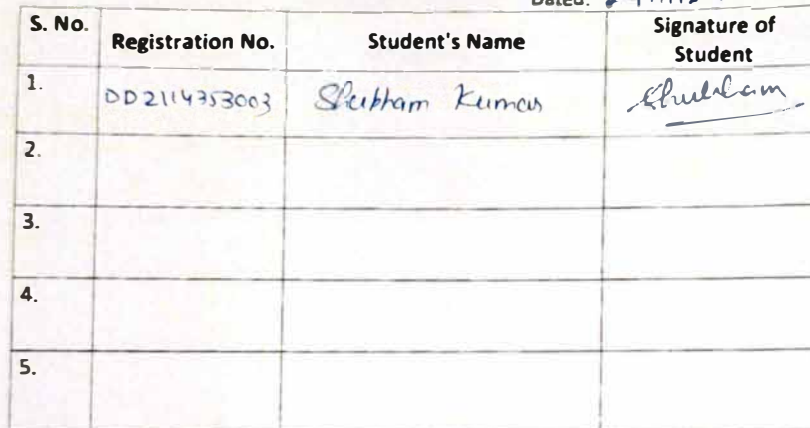 Dated:
S. No. Registration No. Student's Name Signature of Student
1. DD2114353003 Shubham Kumar Shubham
2.
3.
4.
5.